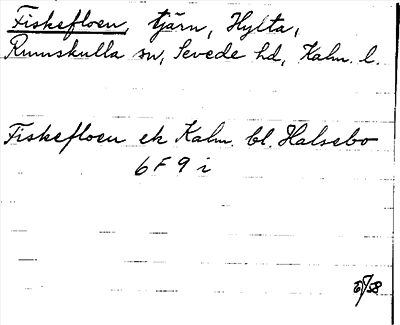 Fiskefloen, tjärn, Hylta,
Rumskulla sn, Sevede hd, Kalm. l.
Fiskefloen ek Kalm. bl. Halsebo
6 F 9 i